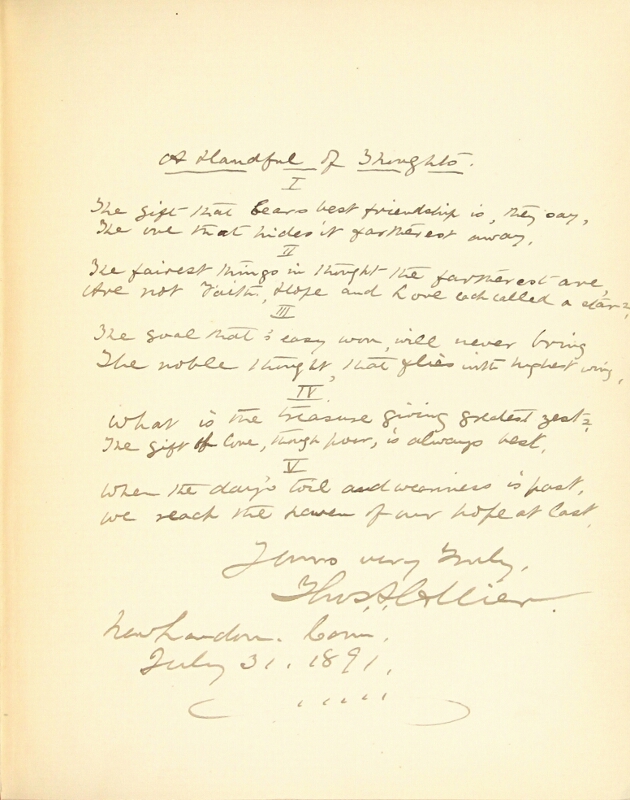 A Handful of Thoughts.
I
The gift that bears best friendship is, they say,
The one that hides it fartherest away.
II
The fairest things in thought the fartherest are,
Are not Faith, Hope and Love each called a star?
III
The goal that's easy won, will never bring
The noble thought, that flies with highest wing.
IV.
What is the treasure giving greatest zest?
The gift of love, though poor, is always best.
V
When the day's toil and weariness is past,
We reach the haven of our hope at last.
Yours very truly,
Thos. S. Collier.
New London. Conn.
July 31. 1891.